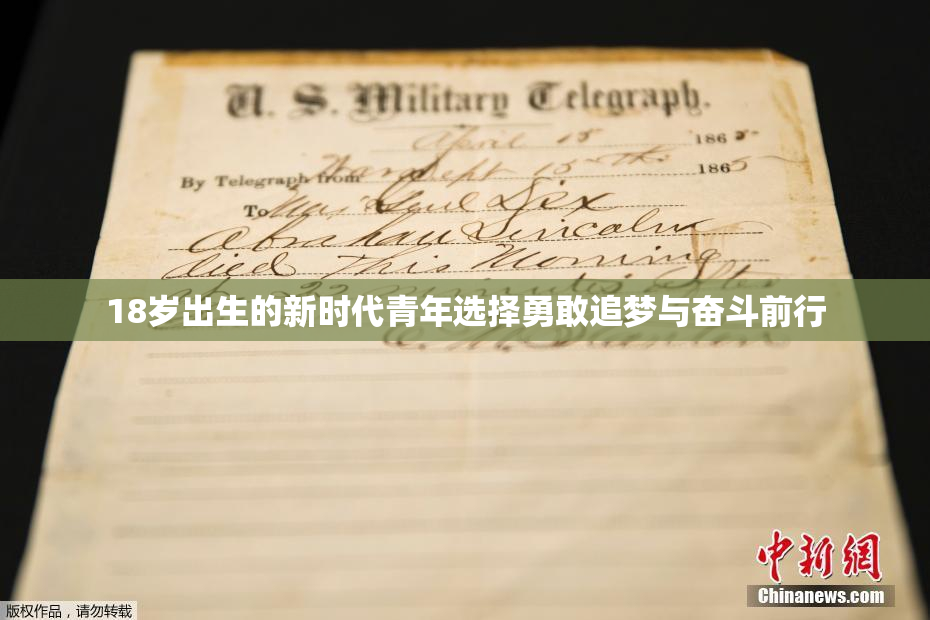 U. S. Military Telegraph.
April 15 1865
By Telegraph from War Dept 15th 1865
To Maj Genl Dix
Abraham Lincoln
died This Morning
at 22 minutes after
18岁出生的新时代青年选择勇敢追梦与奋斗前行
E. M. Stanton
中新网
Chinanews.com
版权作品，请勿转载